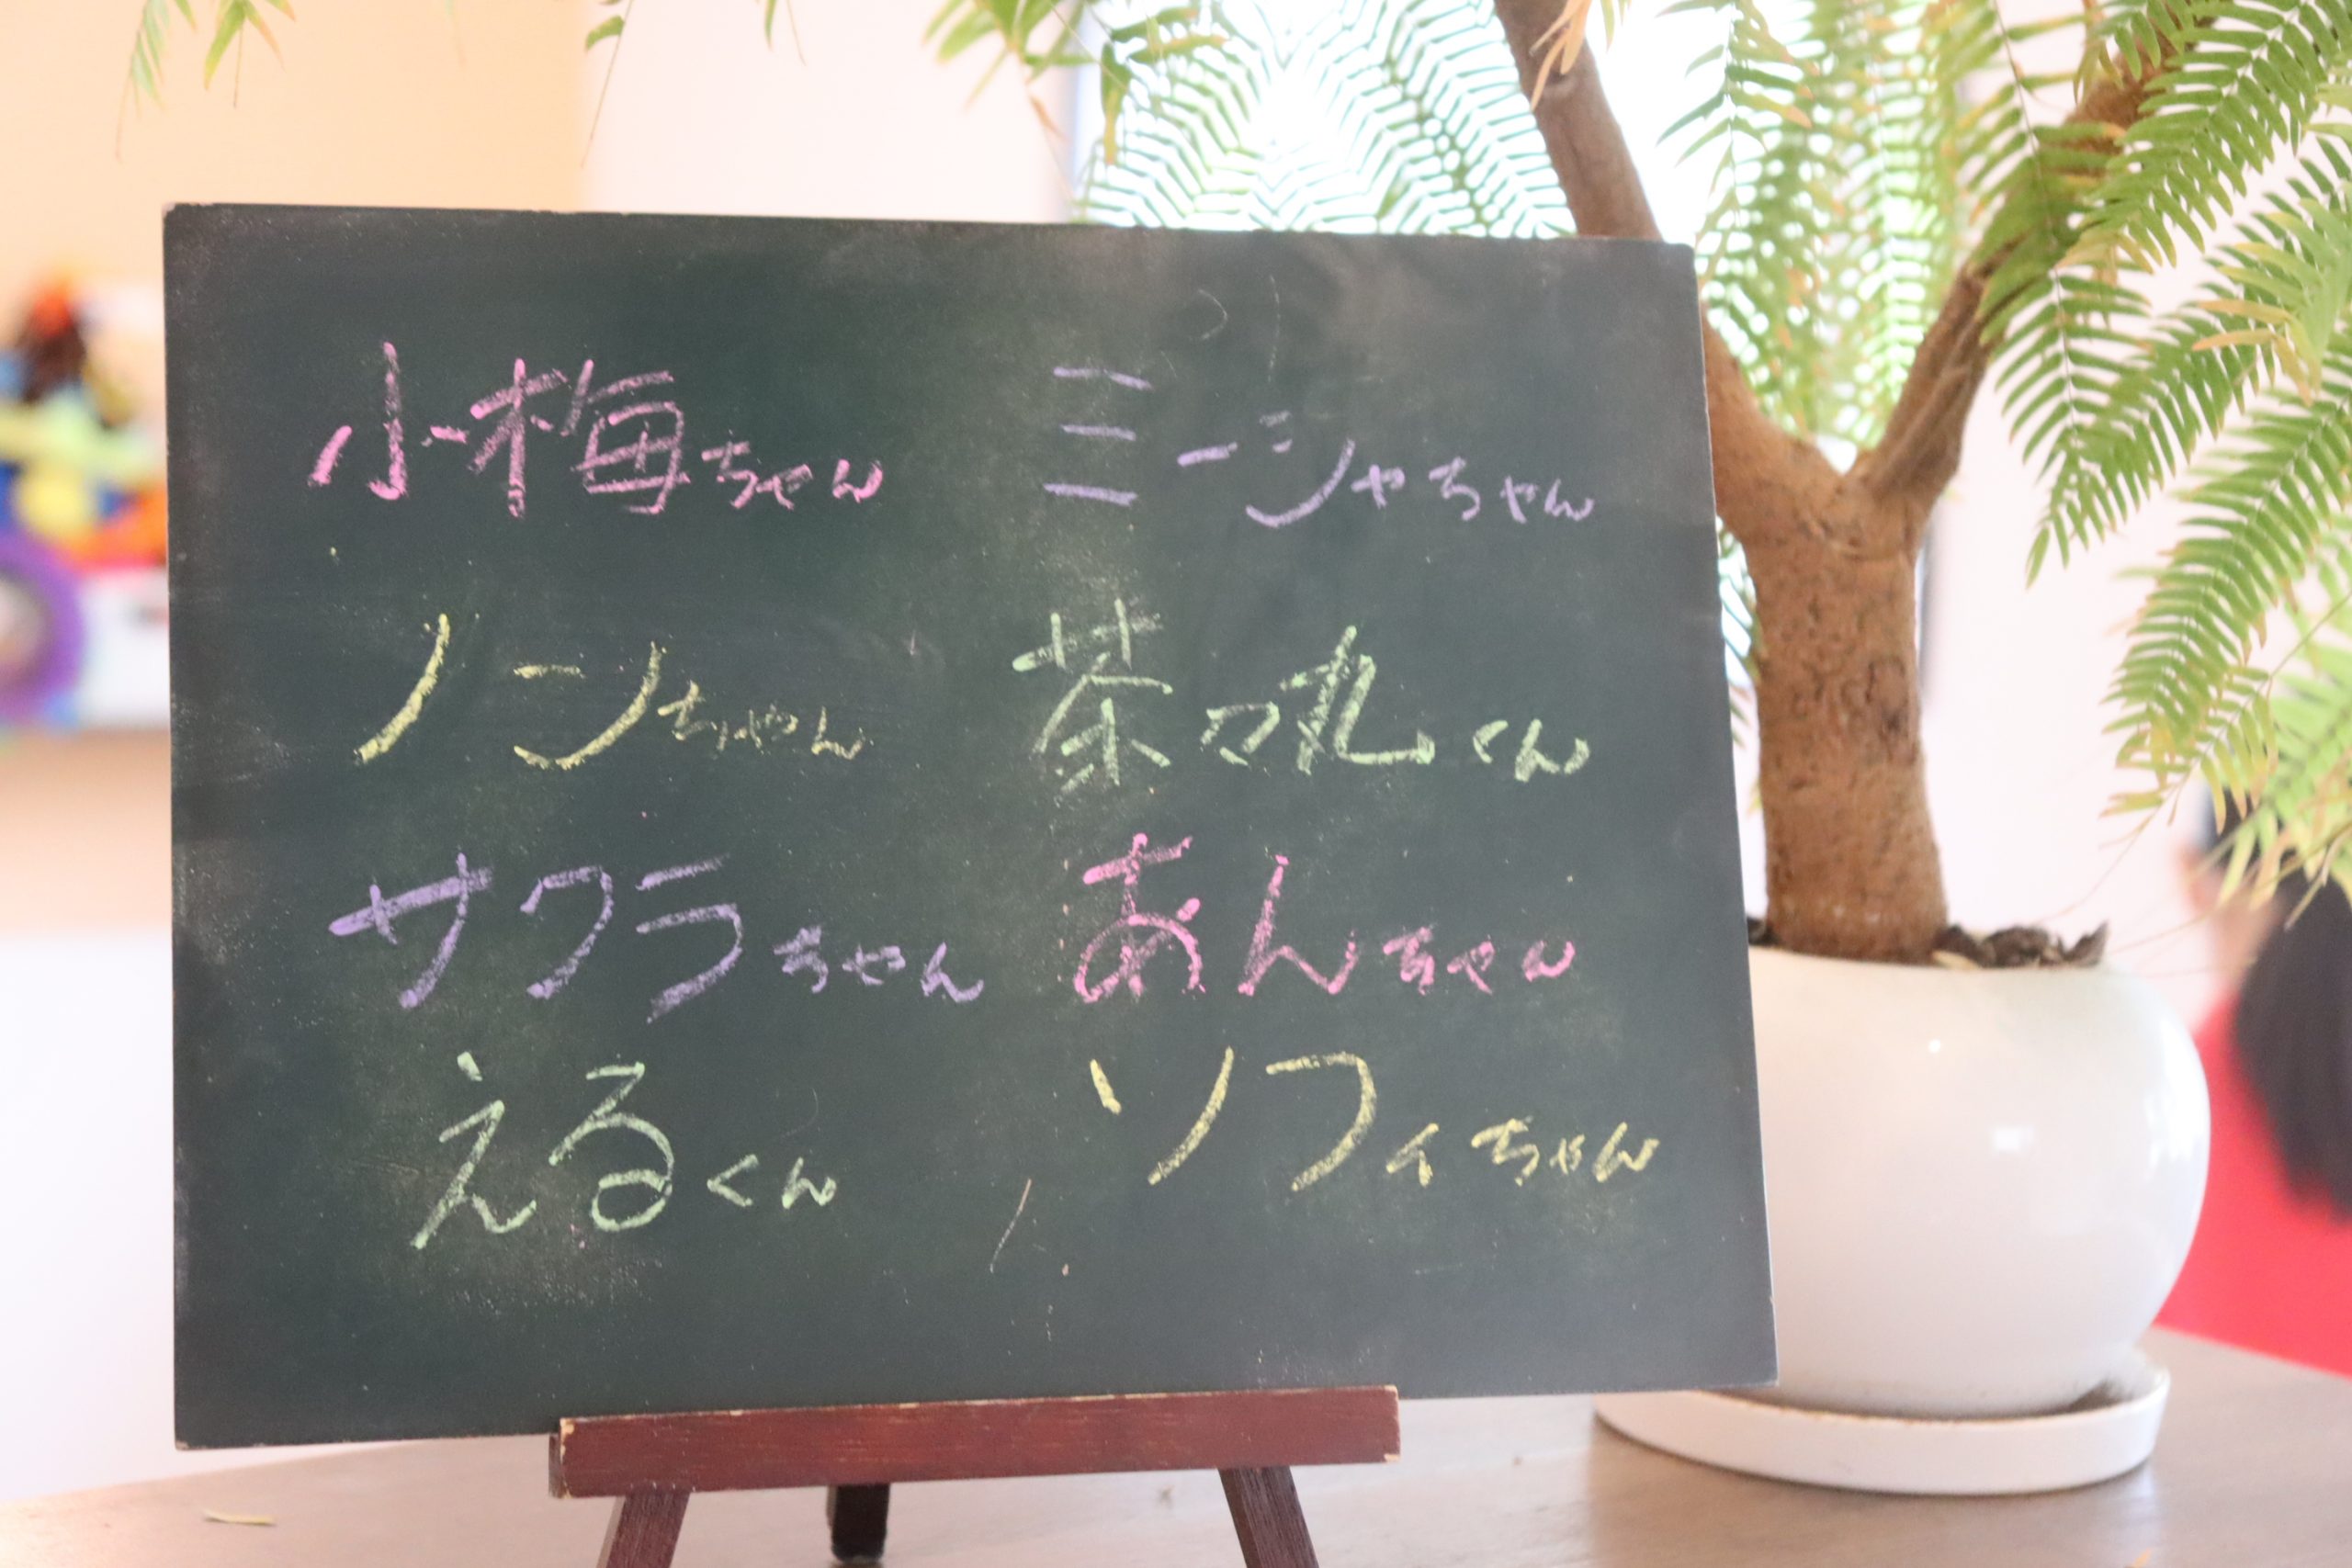 小梅ちゃん ミーシャちゃん
ノンちゃん 茶々丸くん
サクラちゃん あんちゃん
えるくん ソフィちゃん